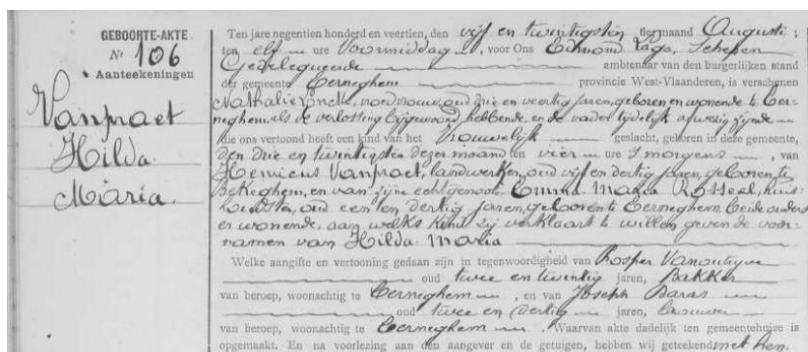 GEBOORTE-AKTE.
Nr 106
Aanteekeningen
Vanpraet
Hilda
Maria.
Ten jare negentien honderd en veertien, den vijf en twintigsten der maand Augusti ;
ten elf ure Voormiddag, voor Ons Edmond Zaga, Schepen
Gedelegueerde ambtenaar van den burgerlijken stand
der gemeente Eerneghem provincie West-Vlaanderen, is verschenen
Nathalie Loncke, vroedvrouw, oud drie en veertig jaren, geboren en wonende te Eer-
neghem, als de verlossing bijgewoond hebbende, en de vader tijdelijk afwezig zijnde
die ons vertoond heeft een kind van het Vrouwelijk geslacht, geboren in deze gemeente,
den drie en twintigsten dezer maand ten vier ure 's morgens, van
Henricus Vanpraet, landwerker, oud vijf en dertig jaren, geboren te
Bekeghem, en van zijne echtgenoote Emma Maria Rosseel, huis-
houdster, oud een en dertig jaren, geboren te Eerneghem, beide ouders
er wonende, aan welks kind zij verklaart te willen geven de voor-
namen van Hilda Maria
Welke aangifte en vertooning gedaan zijn in tegenwoordigheid van Prosper Vanoutryve
oud twee en twintig jaren, Bakker
van beroep, woonachtig te Eerneghem, en van Joseph Baras
oud twee en dertig jaren, brouwer
van beroep, woonachtig te Eerneghem. Waarvan akte dadelijk ten gemeentehuize is
opgemaakt. En na voorlezing aan den aangever en de getuigen, hebben wij geteekend met hen.